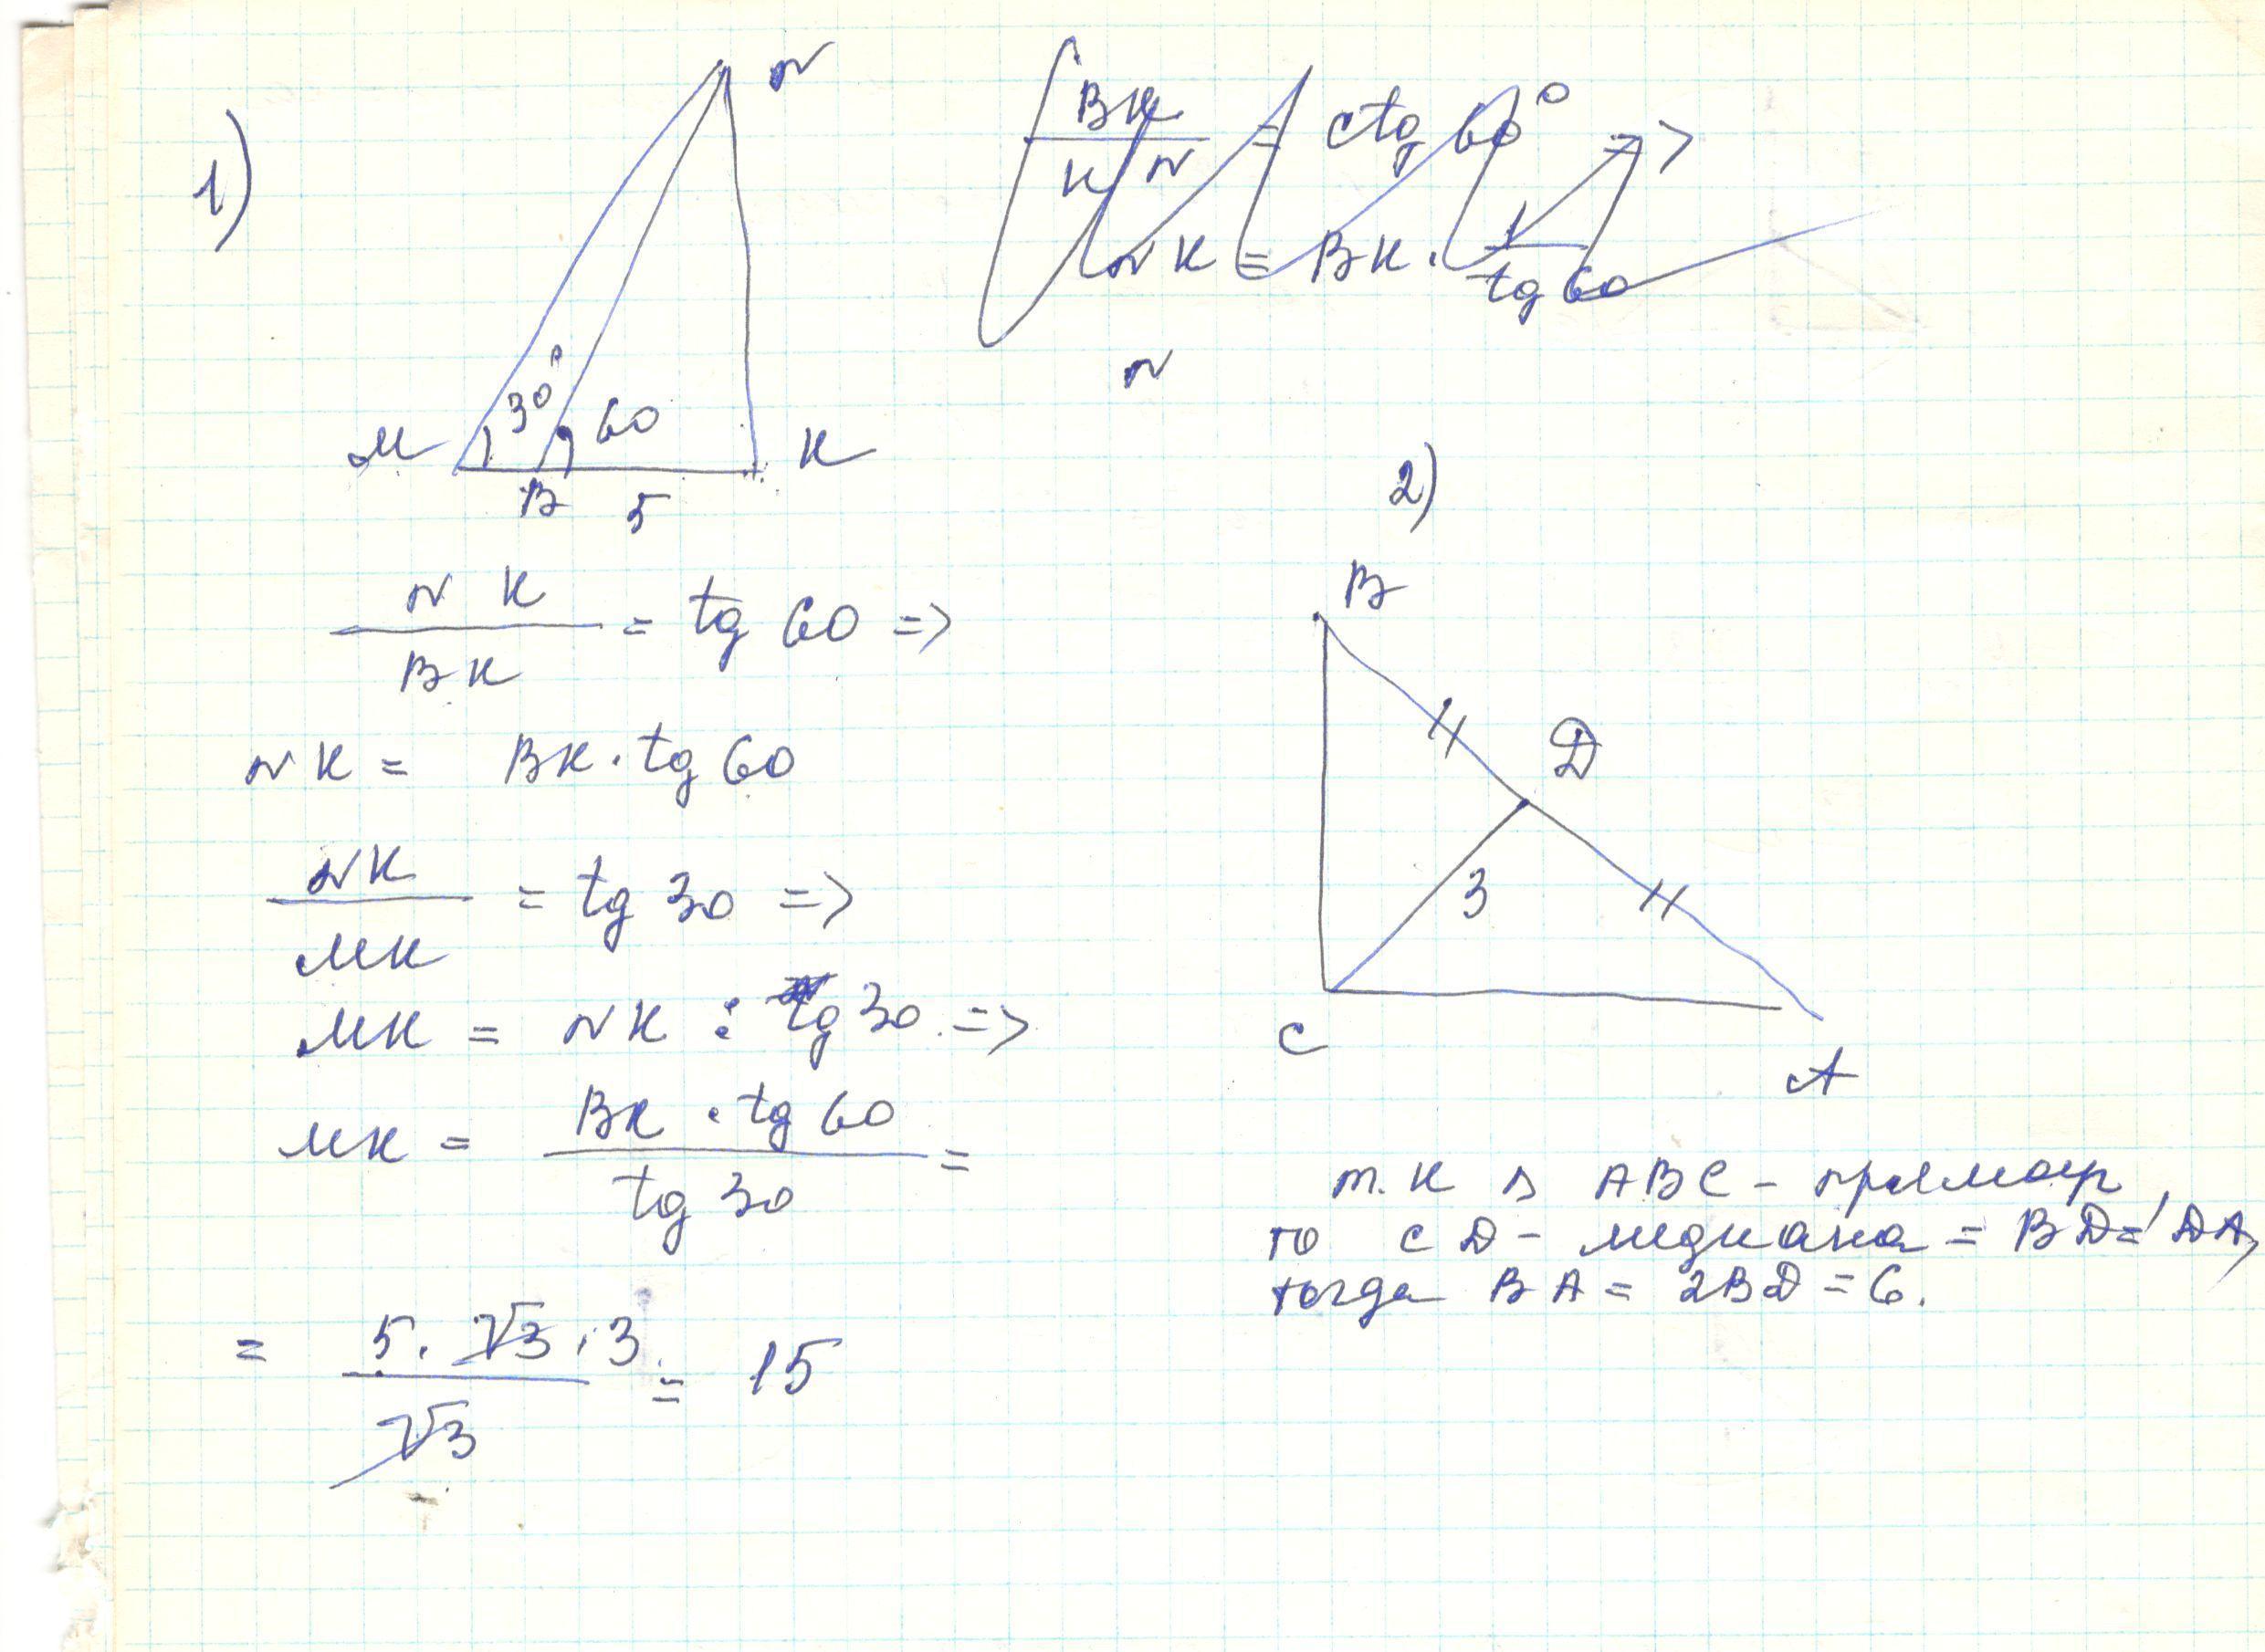 1)
N
30°
60
M
K
B
5
BK/KN = ctg 60° =>
NK = BK · 1/tg 60
N
NK/BK = tg 60 =>
NK = BK · tg 60
NK/MK = tg 30 =>
MK = NK : tg 30 =>
MK = BK · tg 60/tg 30 =
= 5 · √3 · 3/√3 = 15
2)
B
D
3
C
A
т. к Δ ABC - прямоуг,
то CD - медиана = BD = DA,
тогда BA = 2BD = 6.